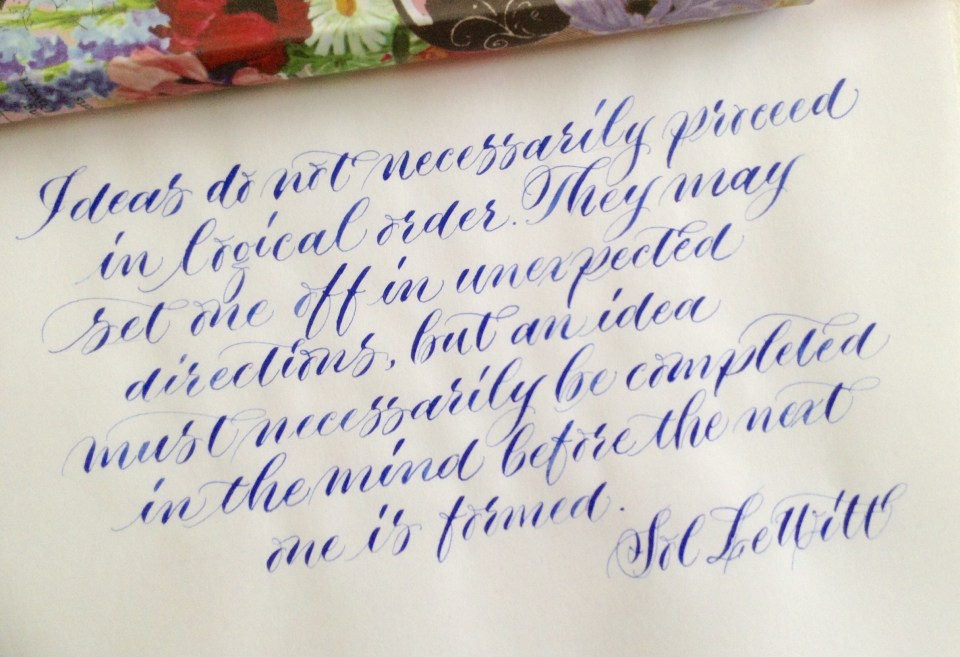 Ideas do not necessarily proceed
in logical order. They may
set one off in unexpected
directions, but an idea
must necessarily be completed
in the mind before the next
one is formed.
Sol LeWitt